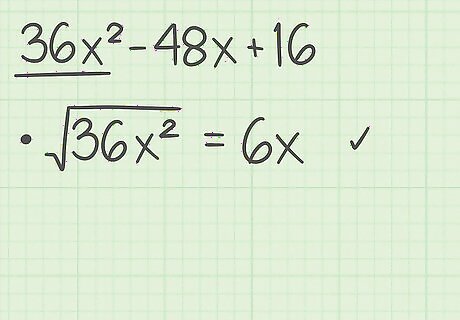 36x² - 48x + 16
• √36x² = 6x ✓